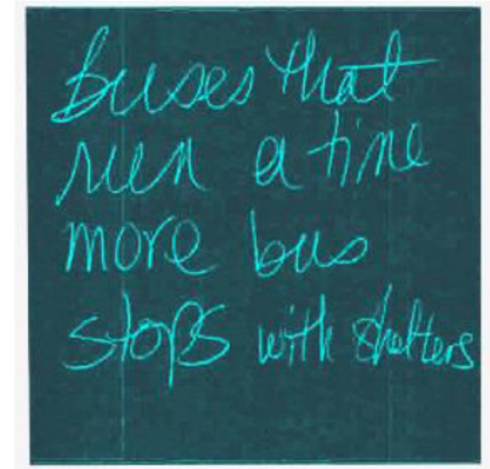 Buses that
run a time
more bus
stops with shelters